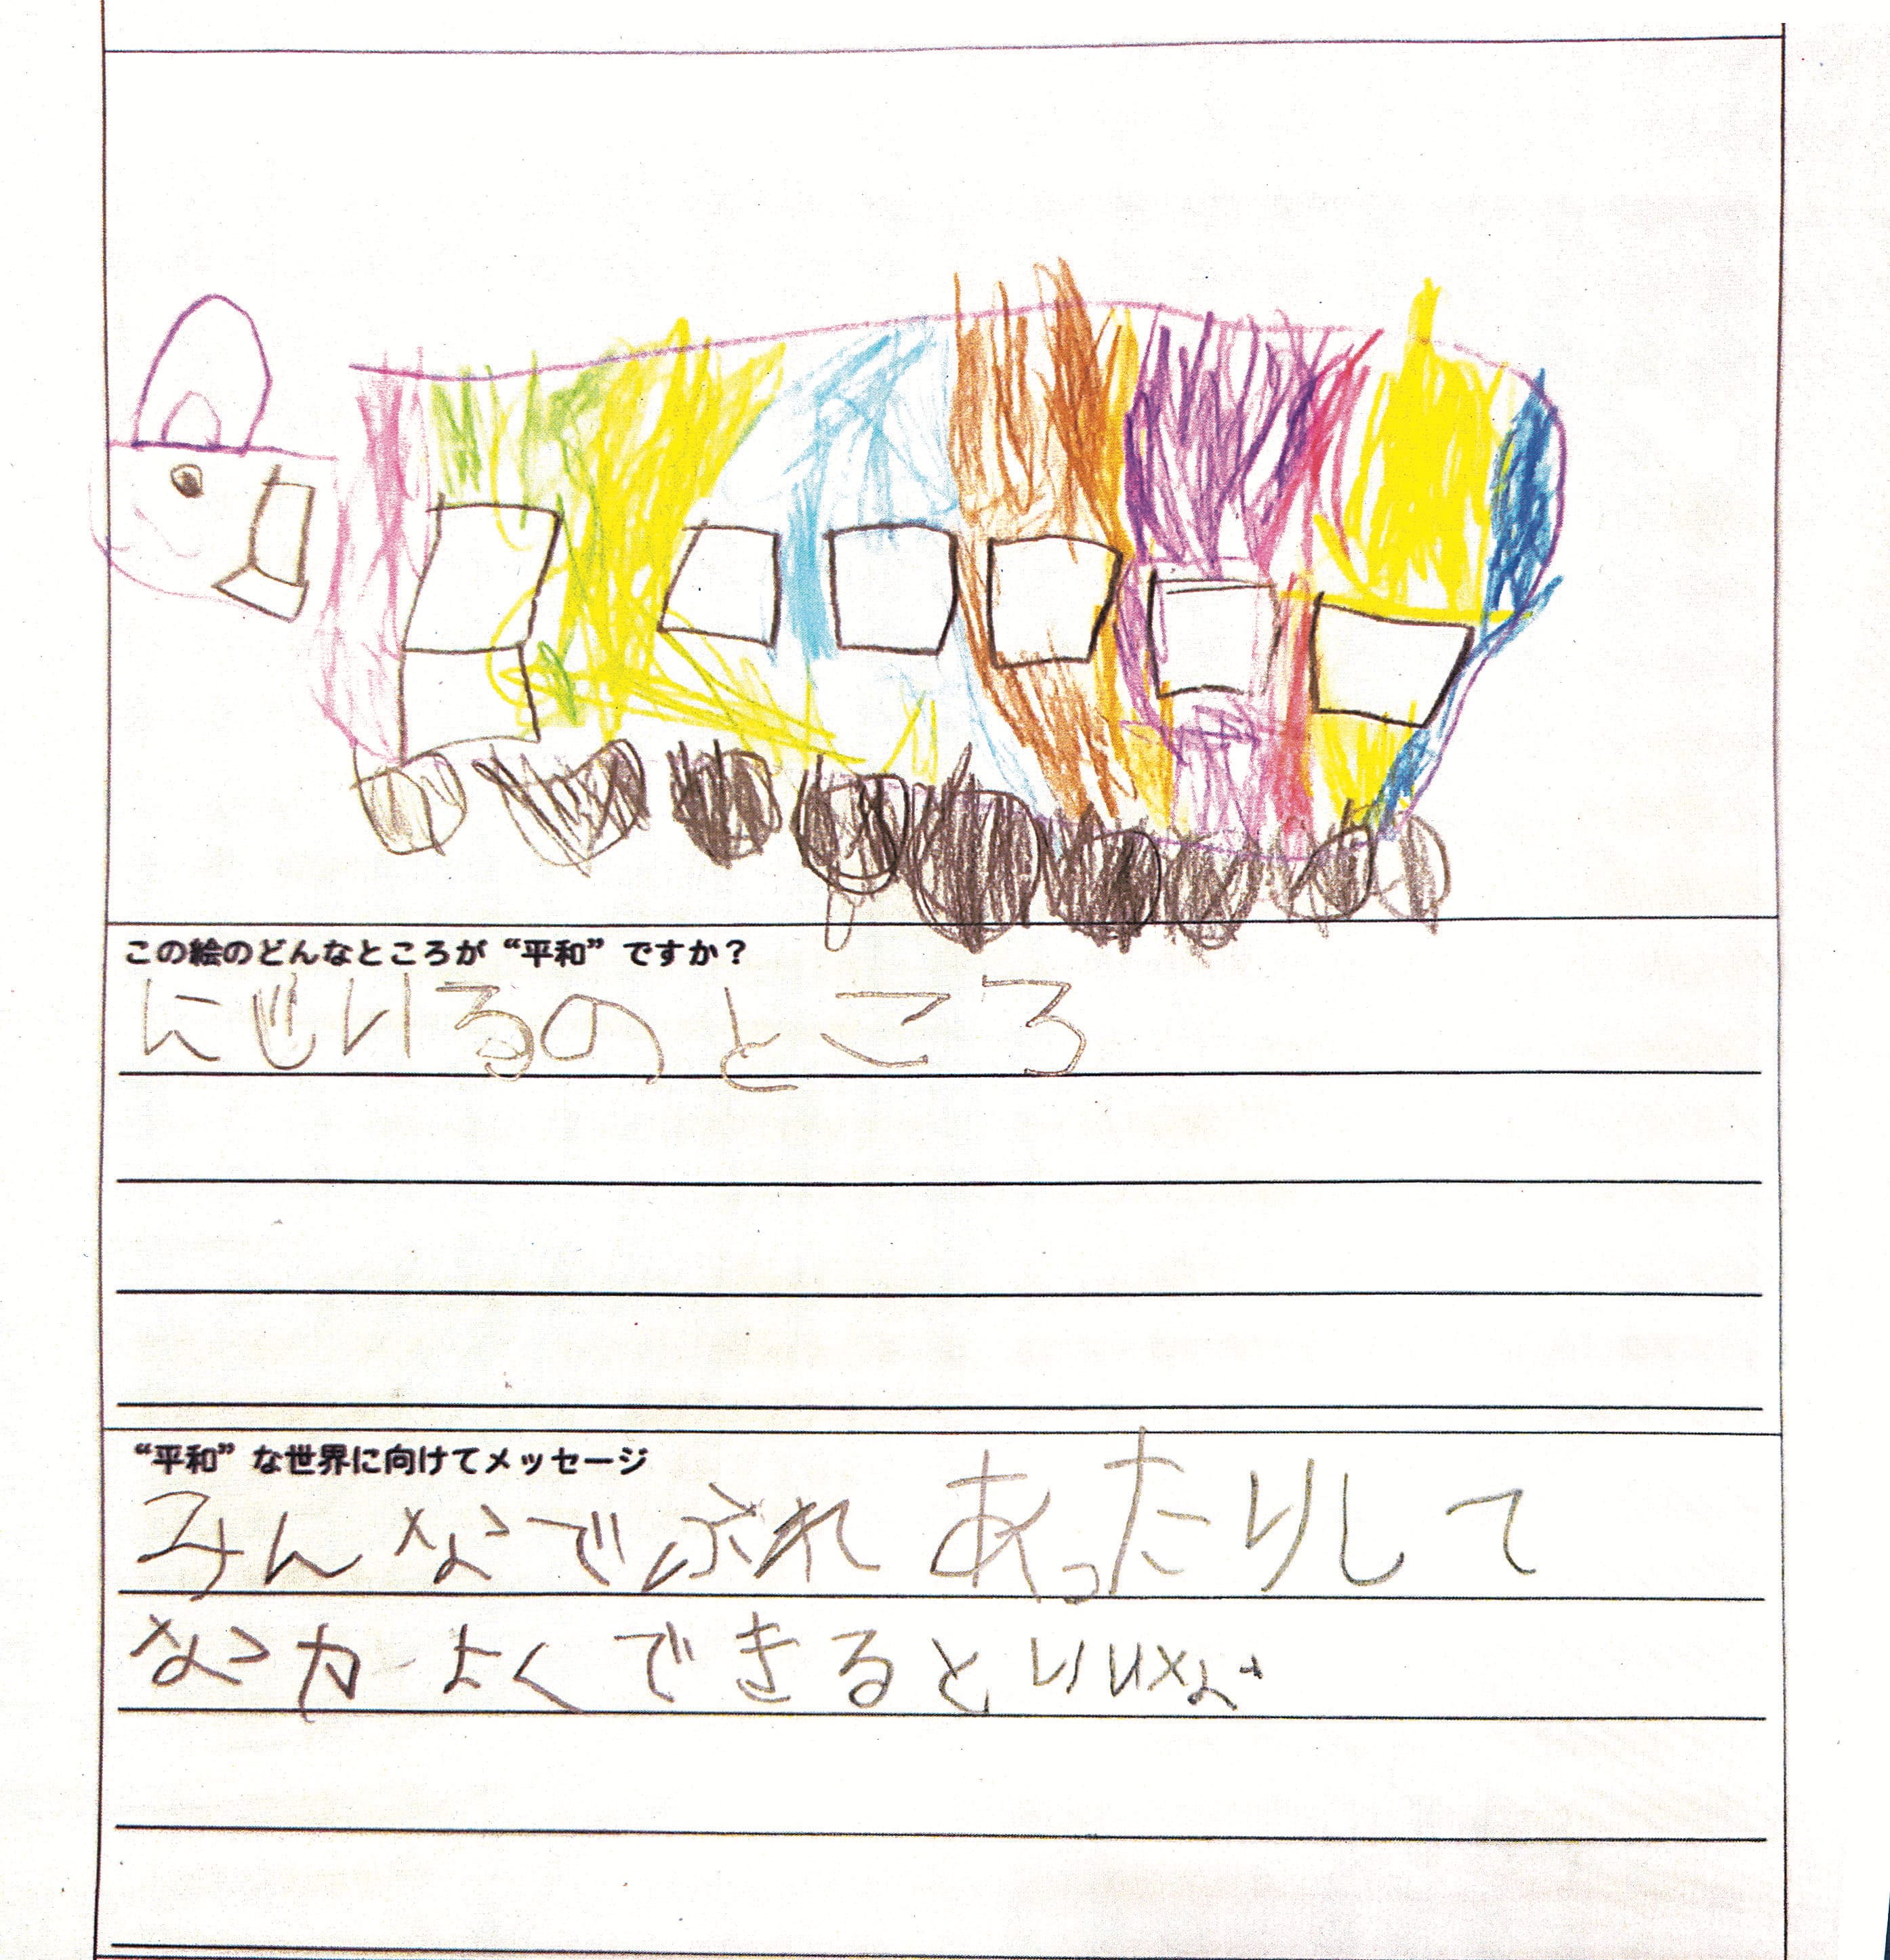 この絵のどんなところが“平和”ですか？
にじいろのところ
“平和”な世界に向けてメッセージ
みんなでふれあったりして
なかよくできるといいな